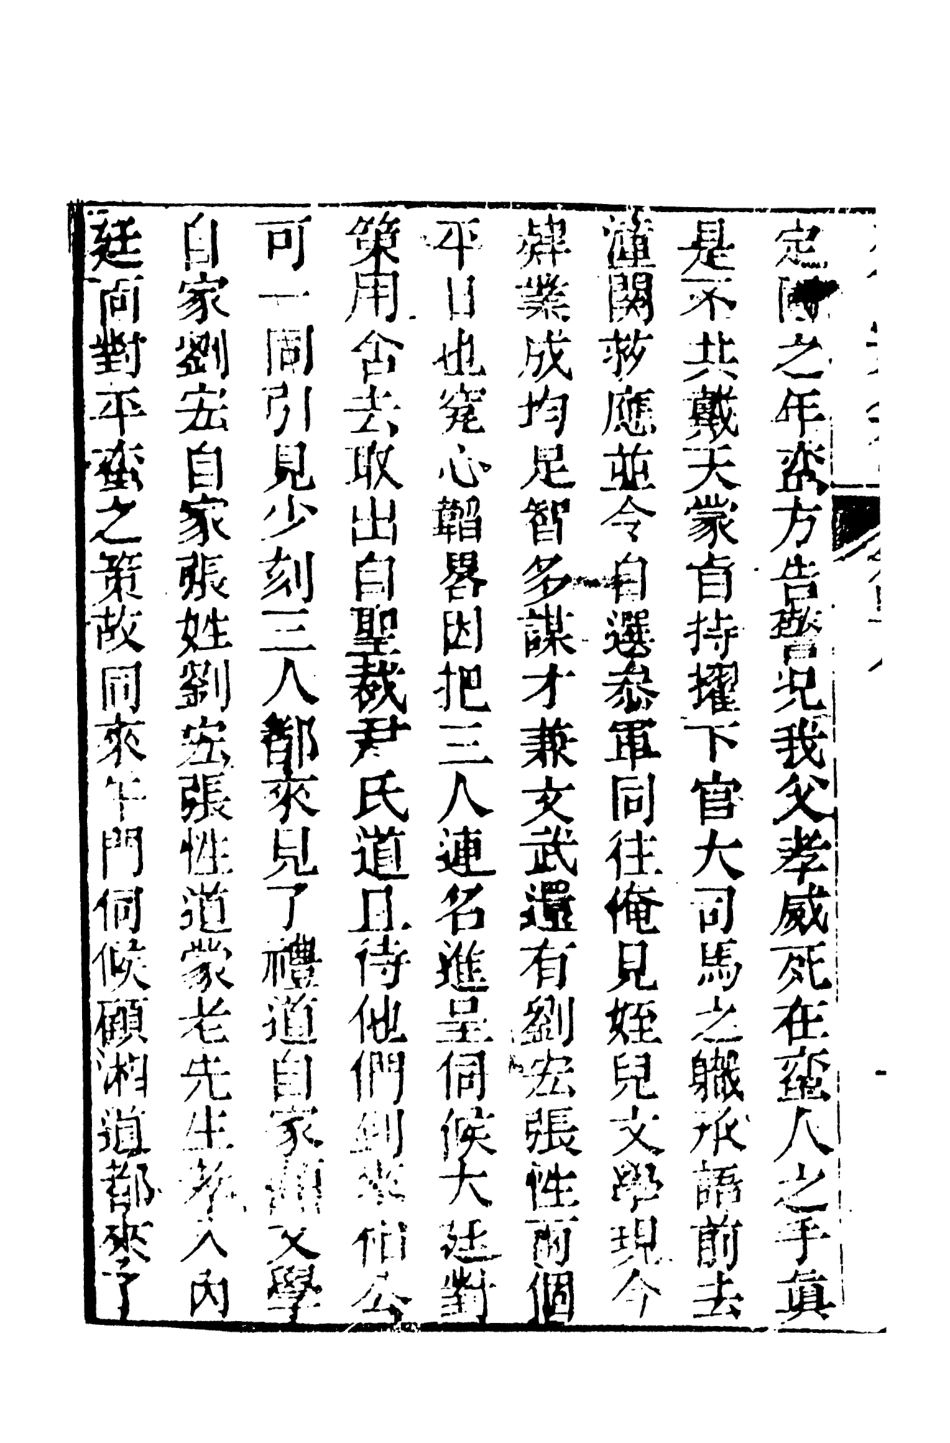 定陶之年蛮方告警况我父孝威死在蛮人之手眞
是不共戴天蒙㫖持擢下官大司馬之職承語前去
潼關救應並令自選叅軍同往俺見姪兒文學現今
肄業成均足智多謀才兼文武還有劉宏張性兩個
平日也究心韜畧因把三人連名進呈伺候大廷對
策用舍去取出自聖裁尹氏道且待他們到來伯公
可一同引見少刻三人都來見了禮道自家顧文學
自家劉宏自家張姓劉宏張性道蒙老先生孝入内
廷面對平蛮之策故同來午門伺候顧湘道都來了